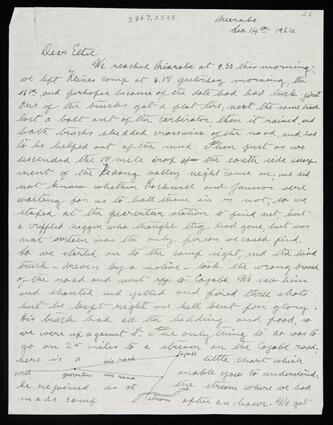 26
3867.2533
Meerabi
Sep 14th 1926
Dear Ethel.
We reached Miarabi at 9.30 this morning.
We left Kleins camp at 6.15 yesterday morning, the
13th and perhaps because of the date had bad luck, first
one of the trucks got a flat tire, next the same truck
lost a bolt out of the carberator, then it rained, and
both trucks skidded crosswise of the road, and had
to be helped out of the mud. Then just as we
descended the 15 mile drop from the south side escarp-
ment of the Kedong valley night came on; we did
not know whether Rockwell and Jonsson were
waiting for us to haul them in or not, so we
stoped at the quarentine station to find out, but
a crippled nigger who thought they had gone, but was
not certain was the only person we could find.
So we started on to the camp right, and the third
truck - driven by a native - took the wrong branch
of the road and went off to Magadi. We saw him
and shouted and yelled and fired three shots
but he kept right on hell bent for glory.
His truck had all the bedding and food so
we were up against it. The only thing to do was to
go on 25 miles to a stream on the Magadi road;
here is a little chart which
our road
Magadi
will enable you to understand.
quarentine
our road
he rejoined us at the stream where we had
stream
made camp after an hour. We got